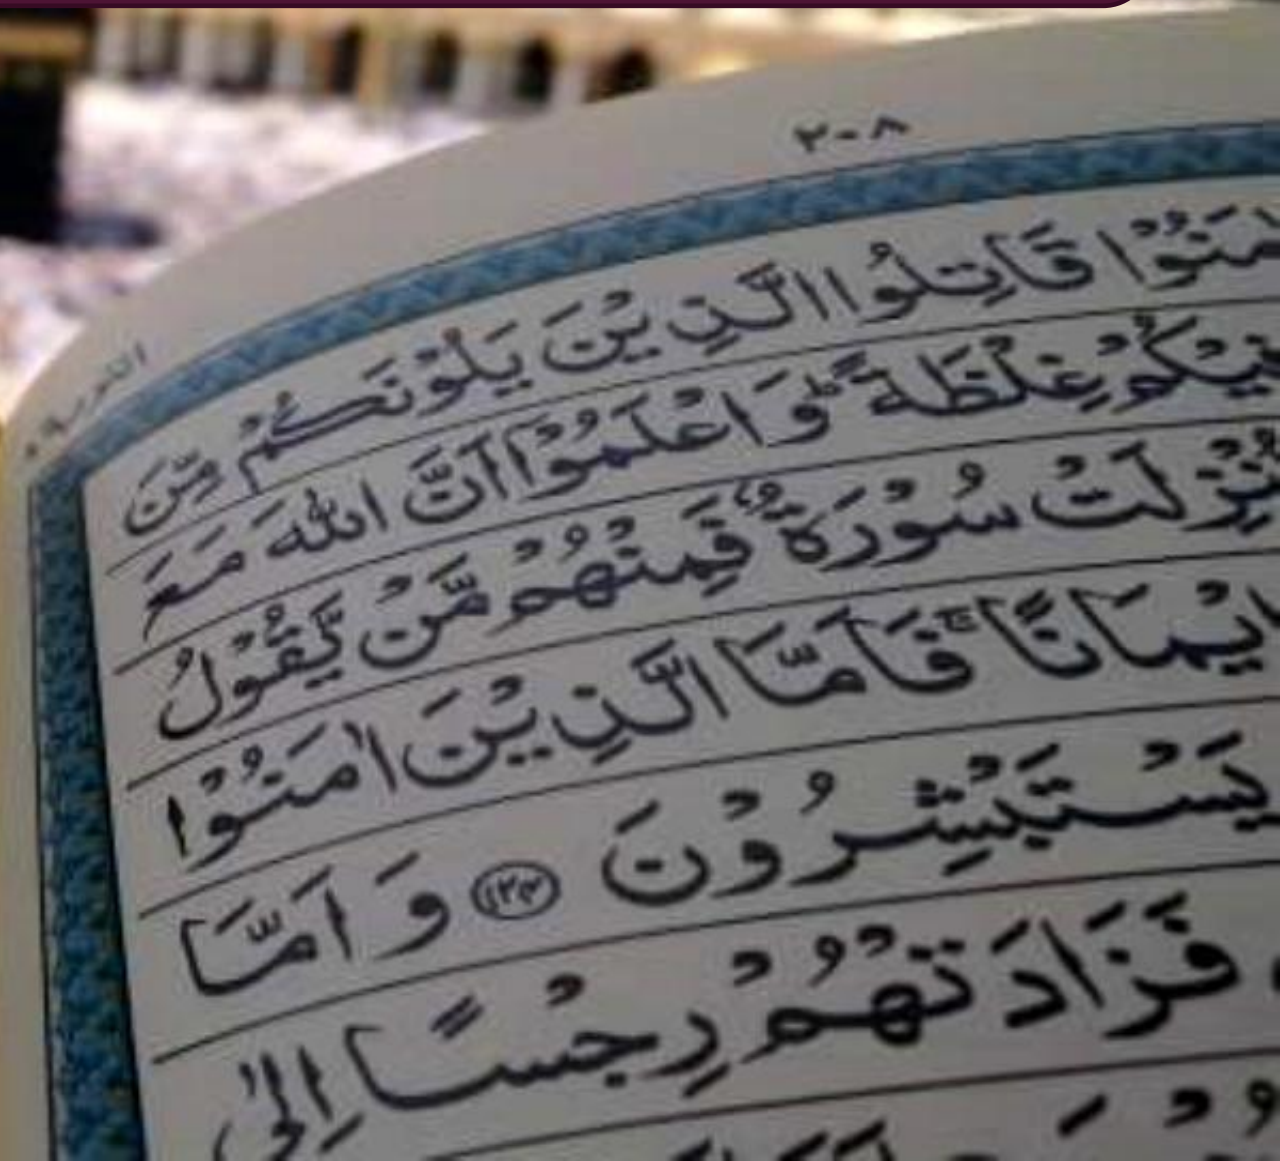 ٢٠٨
التوبة ٩
مَنُوْا قَاتِلُوا الَّذِيْنَ يَلُوْنَكُمْ مِّنَ
فِيْكُمْ غِلْظَةً ؕ وَاعْلَمُوْۤا اَنَّ اللّٰهَ مَعَ
اُنْزِلَتْ سُوْرَةٌ فَمِنْهُمْ مَّنْ يَّقُوْلُ
اِيْمَانًا ۚ فَاَمَّا الَّذِيْنَ اٰمَنُوْا
يَسْتَبْشِرُوْنَ ﴿۱۲۴﴾ وَ اَمَّا
فَزَادَتْهُمْ رِجْسًا اِلٰى